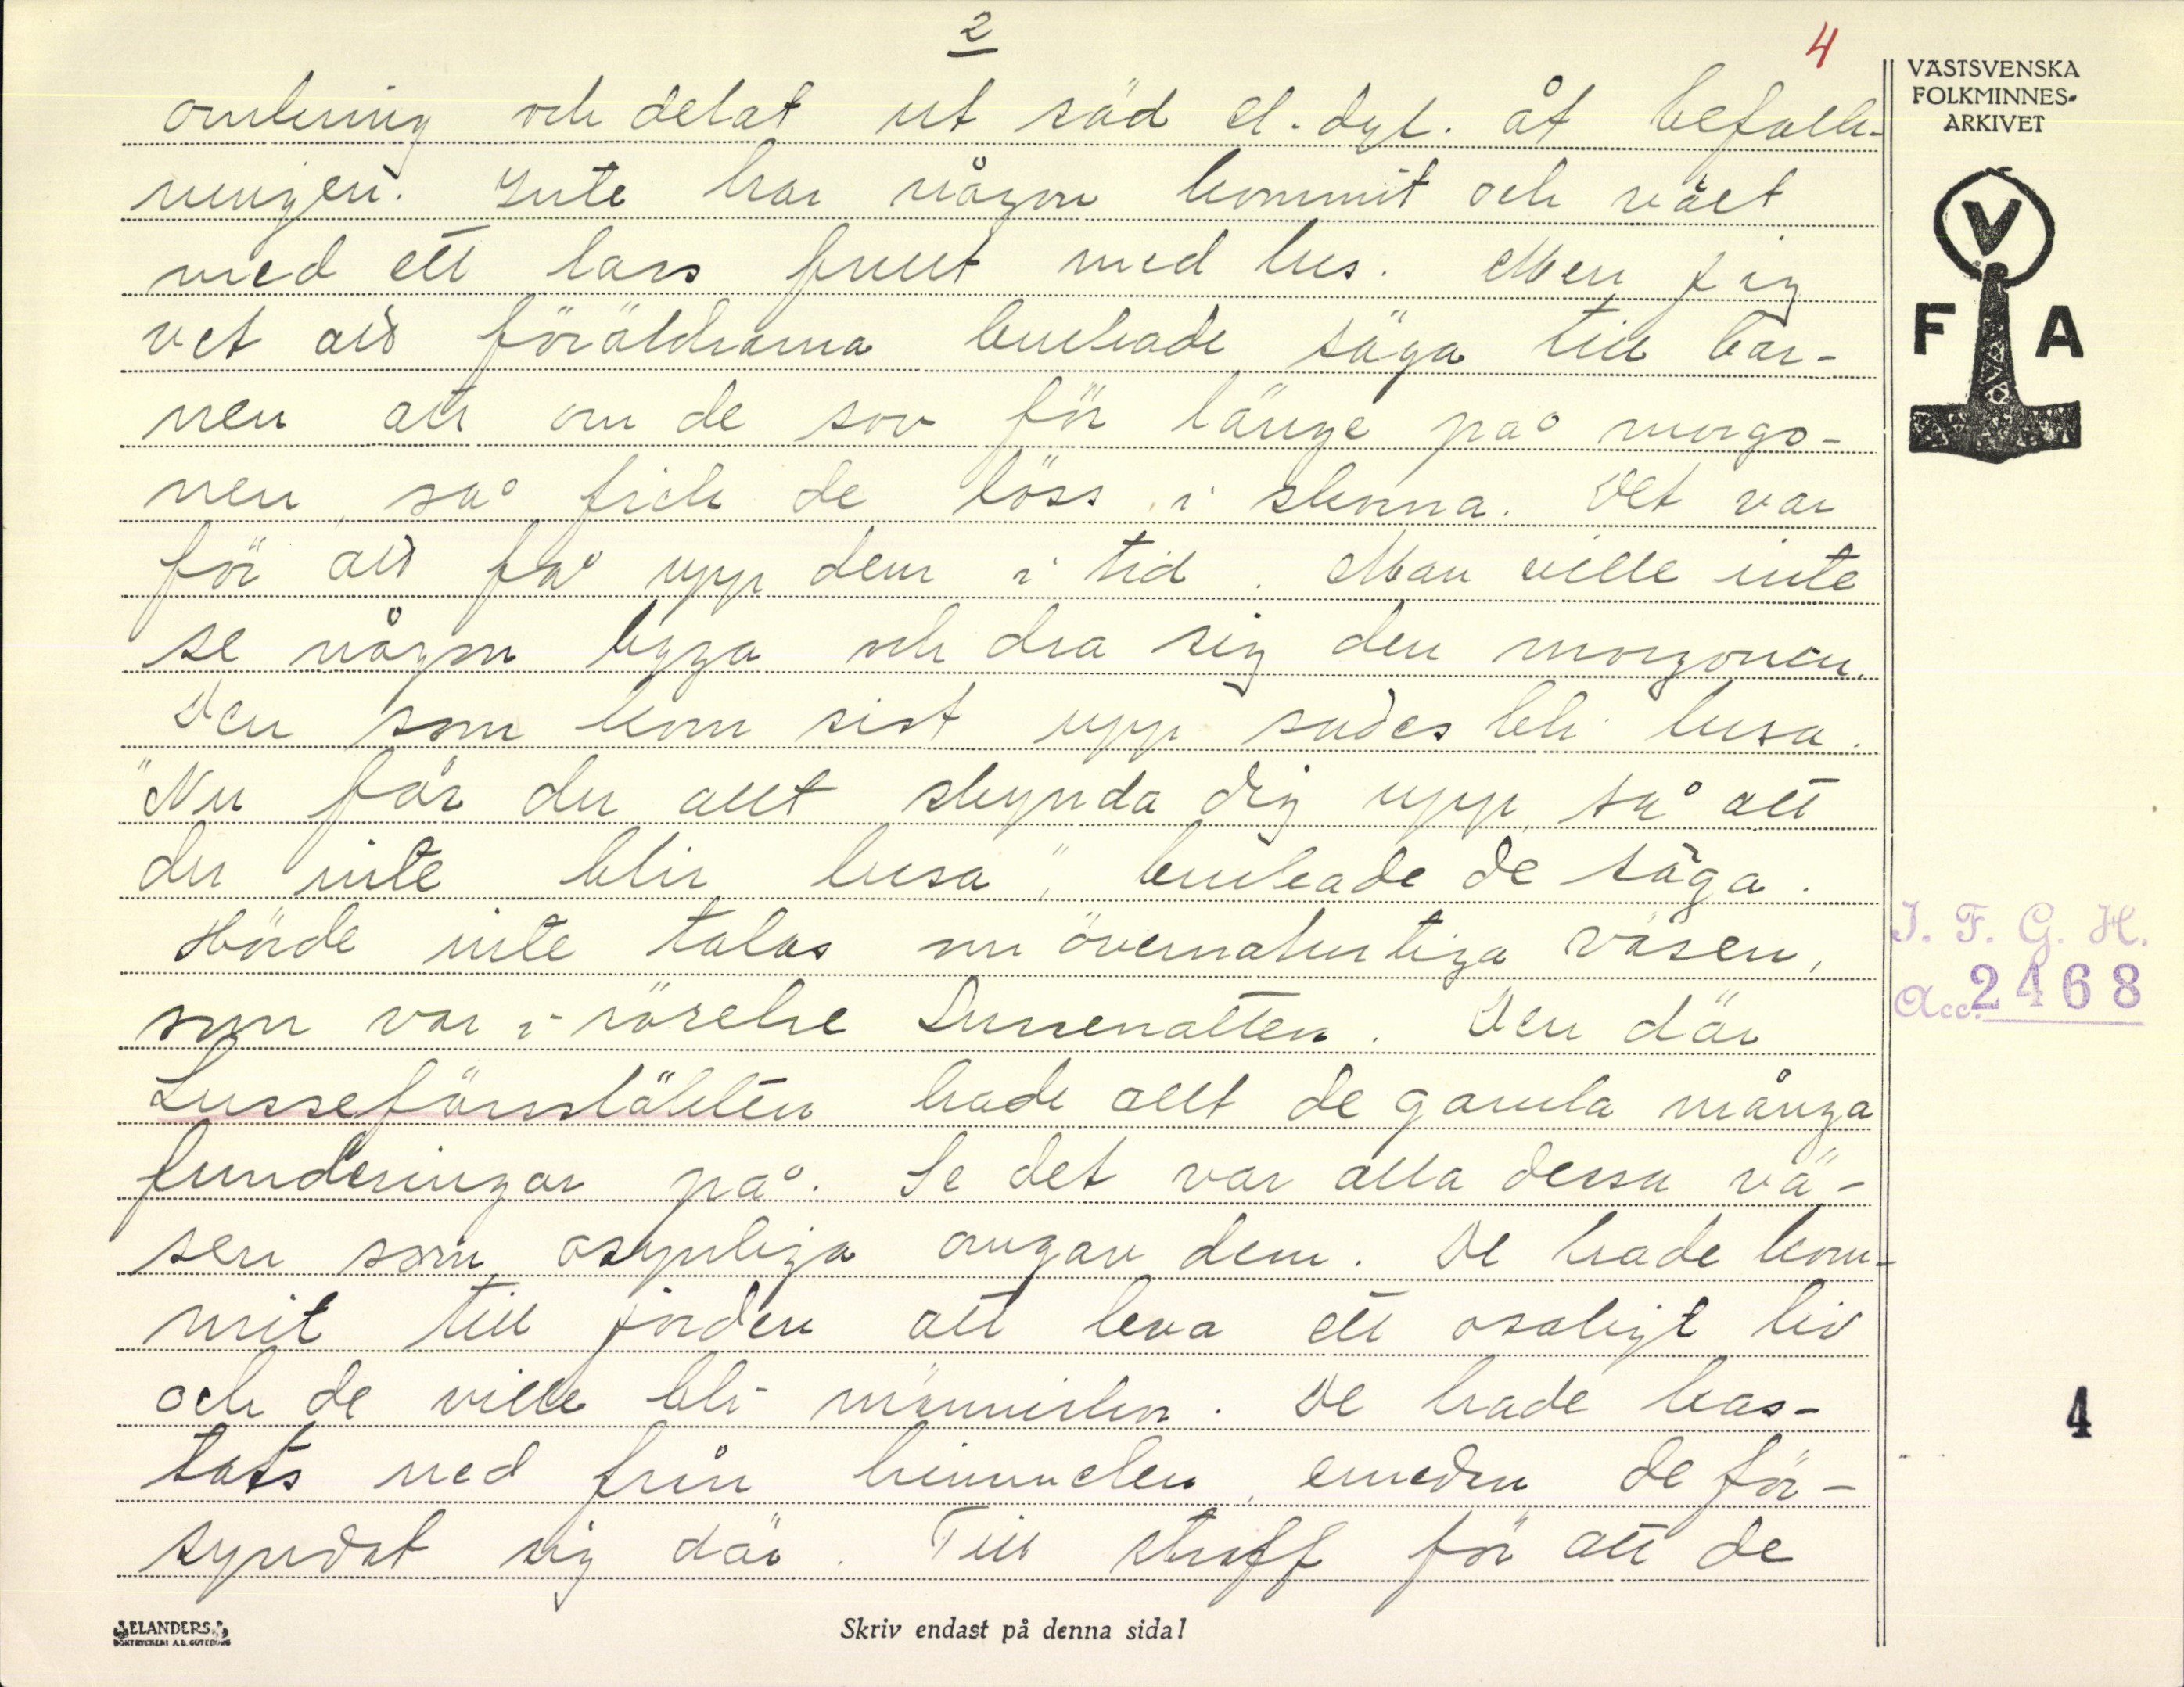 2
4
VÄSTSVENSKA
FOLKMINNES-
ARKIVET
V
F A
omkring och delat ut säd el. dyl. åt befolk-
ningen. Inte har någon kommit och åkt
med ett lass fullt med lus. Men jag
vet att föräldrarna brukade säga till bar-
nen att om de sov för länge på morgo-
nen, så fick de löss i skorna. Det var
för att få upp dem i tid. Man ville inte
se någon ligga och dra sig den morgonen.
Den som kom sist upp sades bli lusa.
"Nu får du allt skynda dig upp, så att
du inte blir lusa", brukade de säga.
Hörde inte talas om övernaturliga väsen,
som var i rörelse Lussenatten. Den där
Lusseförssläkten hade allt de gamla många
funderingar på. Se det var alla dessa vä-
sen som osynliga omgav dem. De hade kom-
mit till jorden att leva ett osaligt liv
och de ville bli människor. De hade kas-
tats ned från himmelen, emedan de för-
syndat sig där. Till straff för att de
I. F. G. H.
Acc. 2468
4
ELANDERS
BOKTRYCKERI A.B. GÖTEBORG
Skriv endast på denna sida!